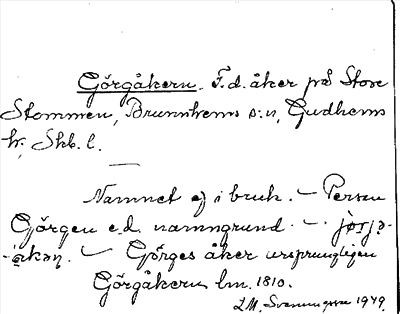 Görgåkern. F. d. åker på Stora
Stommen, Brunnhems s:n, Gudhems
hr, Skb. l.
Namnet ej i bruk. – Person
Görgen e.d. namngrund. – jørjə-
-åkəṇ. – Görges åker ursprungligen
Görgåkern lm. 1810.
L.M. Svanungsson 1949.